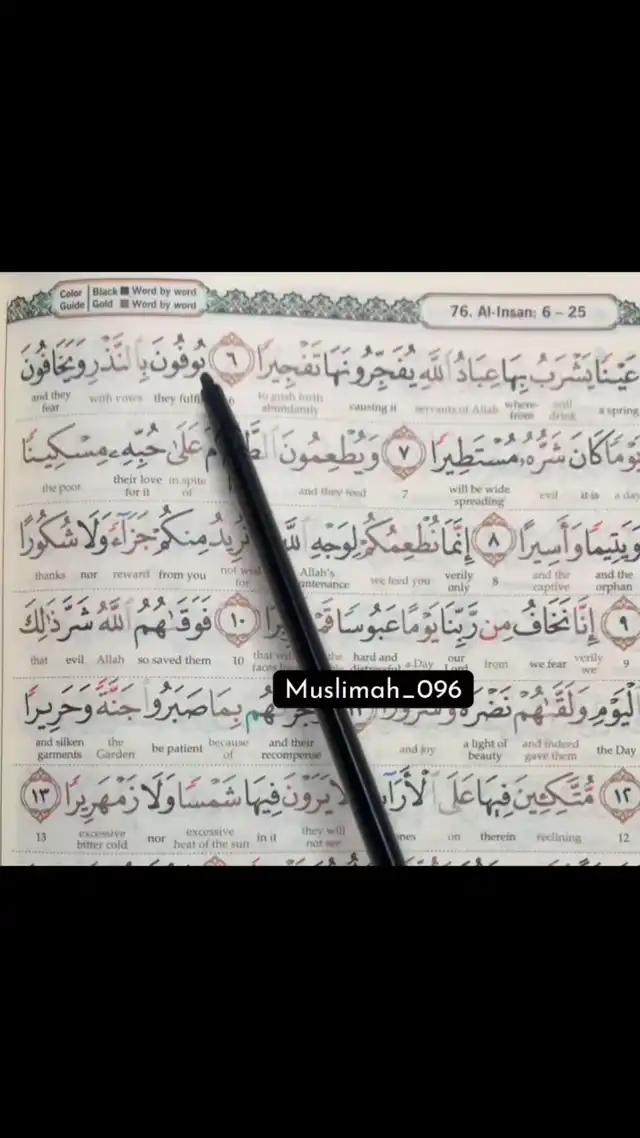 Color Guide | Black ■ Word by word
Gold ■ Word by word
76. Al-Insan: 6 – 25
عَيْنًا يَشْرَبُ بِهَا عِبَادُ اللَّهِ يُفَجِّرُونَهَا تَفْجِيرًا ٦ يُوفُونَ بِالنَّذْرِ وَيَخَافُونَ
a spring will drink where-from servants of Allah causing it to gush forth abundantly 6 they with vows and they fear
يَوْمًا كَانَ شَرُّهُ مُسْتَطِيرًا ٧ وَيُطْعِمُونَ عَلَىٰ حُبِّهِ مِسْكِينًا
a day it is evil will be wide spreading 7 and they feed in spite of their love for it the poor
وَيَتِيمًا وَأَسِيرًا ٨ إِنَّمَا نُطْعِمُكُمْ لِوَجْهِ اللَّهِ نُرِيدُ مِنكُمْ جَزَاءً وَلَا شُكُورًا
and the orphan and the captive 8 verily only we feed you Allah's not for from you reward nor thanks
٩ إِنَّا نَخَافُ مِن رَّبِّنَا يَوْمًا عَبُوسًا ١٠ فَوَقَاهُمُ اللَّهُ شَرَّ ذَٰلِكَ
9 verily we we fear from our Lord a Day hard and 10 so saved them Allah evil that
الْيَوْمِ وَلَقَّاهُمْ نَضْرَةً وَسُرُورًا بِمَا صَبَرُوا جَنَّةً وَحَرِيرًا
the Day and indeed gave them a light of beauty and joy and their recompense because of be patient the Garden and silken garments
Muslimah_096
١٢ مُّتَّكِئِينَ فِيهَا عَلَى يَرَوْنَ فِيهَا شَمْسًا وَلَا زَمْهَرِيرًا ١٣
12 reclining therein on they will not see in it excessive heat of the sun nor excessive bitter cold 13